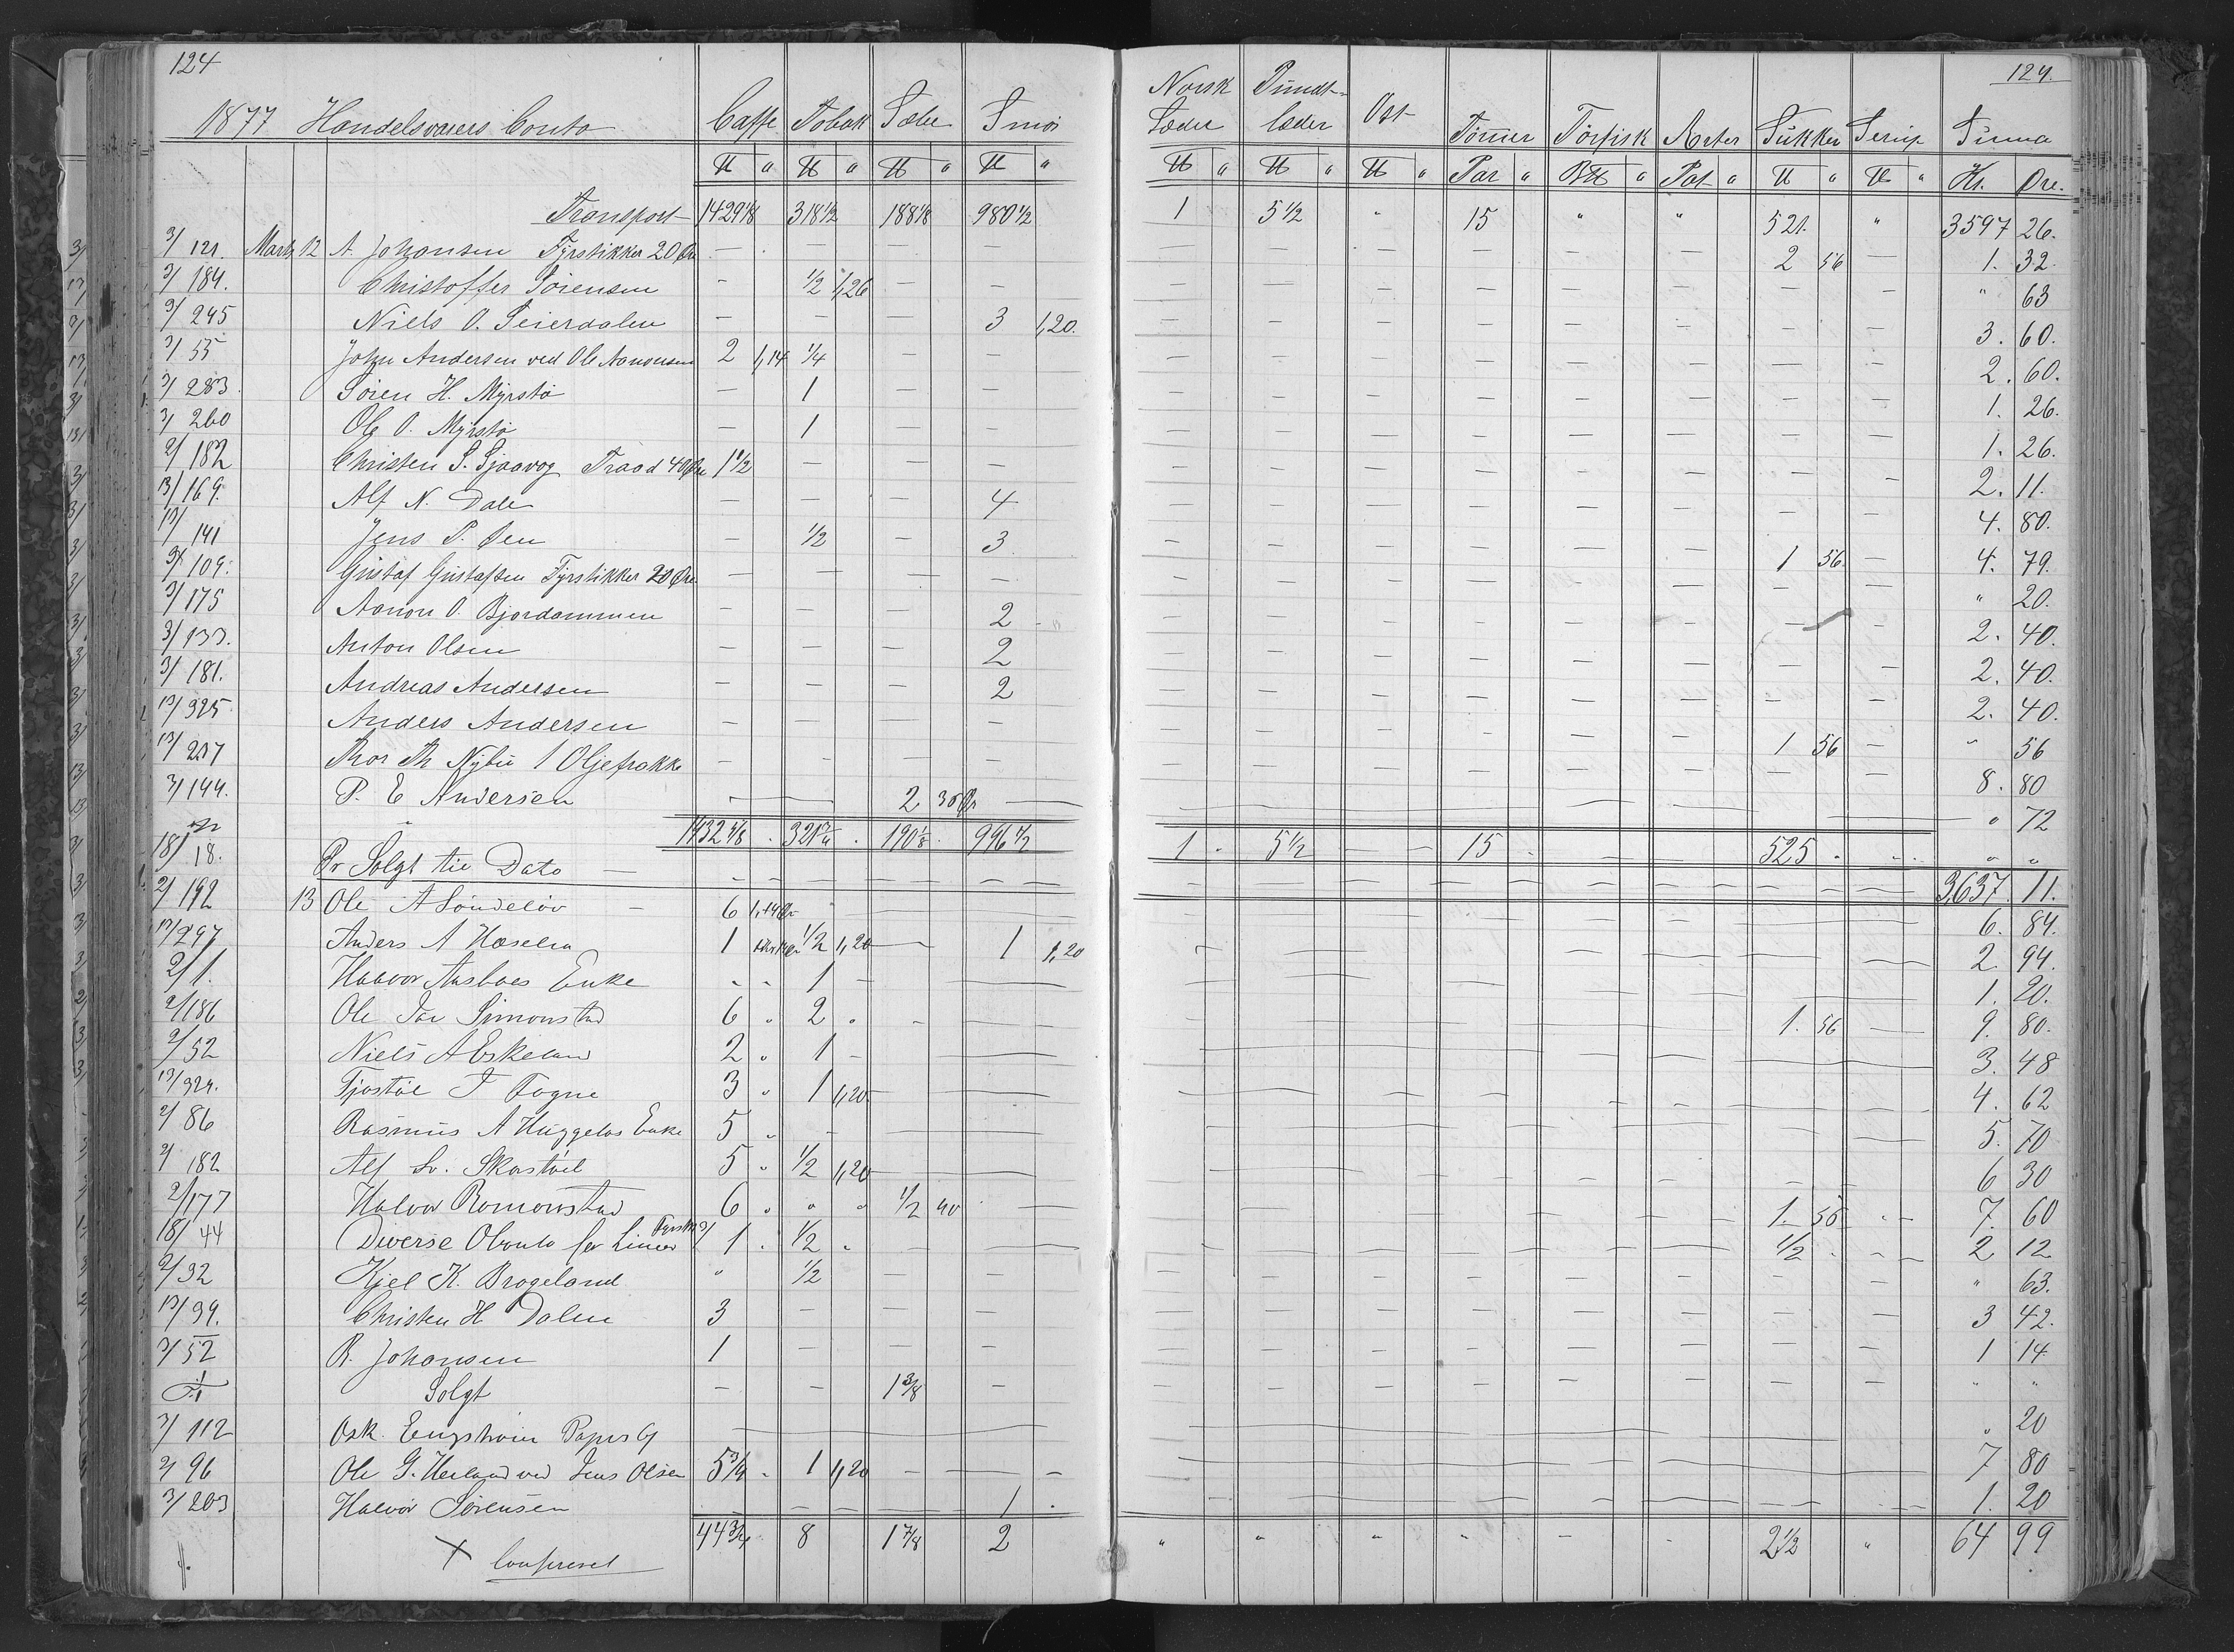 124
124.
1877 Handelsvarers Conto Caffe Tobak Sæbe Smør Norsk Læder Pundt-læder Ost Tørrer Törfisk Ærter Sukker Serup Summa
℔ " ℔ " ℔ " ℔ " ℔ " ℔ " ℔ " Par " B℔ " Pot " ℔ " ℔ " Kr. Øre.
Transport 1429 1/8 318 1/2 188 1/8 980 1/2 1 5 1/2 " 15 " " 521. " 3597 26.
3/121. Marts 12 A. Johansen Fyrstikker 20 Øre — — — — 2 56 — 1. 32.
3/184. Christoffer Sörensen — 1/2 1,26 — — " 63
3/245 Niels O. Seierdalen — — — 3 1,20. 3. 60.
3/55 John Andersen ved Ole Aanonsen 2 1,14 1/4 — — 2. 60.
3/283. Sören H. Myrstö — 1 — — 1. 26.
3/260 Ole O. Myrstö — 1 — 1. 26.
2/182 Christen S. Sjaavog Traad 40 Øre 1 1/2 — — — 2. 11.
13/169. Alf N. Dale — — — 4 4. 80.
13/141 Jens P. Øen — 1/2 — 3. 1 56. — 4. 79.
3/109. Gustaf Gustafsen Fyrstikker 20 Øre — — — — " 20.
3/175 Aanon O. Bjordammen — — — 2 2. 40.
3/133. Anton Olsen — — — 2 2. 40.
3/181. Andreas Andersen — — — 2 2. 40.
13/325 Anders Andersen — — — — 1 56 — " 56
13/217 Thor Th Nybu 1 Oljefrakke — — — — 8. 80
3/144. P. E Andersen — 2 36 Ør — " 72
1432 4/8 . 321 3/4 . 190 1/8 . 996 1/2 1 . 5 1/2 — 15 . — — 525 . " "
18/18. Pr Solgt til Dato — — — — — 3,637. 11.
2/192 13 Ole A Söndelöv — 6 1,14 Ør 6. 84.
13/297 Anders A Hæselen 1 1/2 1,20 — 1 1,20 2. 94.
2/1. Haavor Aasboes Enke - - 1 - — 1. 20.
2/186 Ole Jac Simonstad 6 " 2 " - — 1. 56 — 9. 80.
2/52 Niels A Eskeland 2 " 1 - — 3. 48
13/324. Tjöstöl J Fogne 3 " 1 1,20 — 4. 62
2/86 Rasmus A Huggelas Enke 5 " - 5. 70
2/182 Alf Sv. Skastöl 5 " 1/2 1,20 — 6 30
2/177 Halvor Romonstad 6 " " " 1/2 40 — 1. 56 - - 7. 60
18/44 Diverse Olconto for Limer 1 . 1/2 " - — 1/2 . - - 2 12
2/32 Kjel K. Brogeland " 1/2 — — " 63.
13/39. Christen H Dalen 3 — — — 3 42.
3/52 R. Johansen 1 — — — 1 14
Solgt — — 1 3/8 — " "
3/112 Osk. Engström — " 20
2/96 Ole G. Heiland ved Jens Olsen 5 3/4 - 1 1,20 — — — 7 80
3/203 Halvor Sörensen — — — 1 . 1. 20
44 3/4 . 8 1 7/8 2 " " " " - - 2 1/2 " 64 99
X Confereret